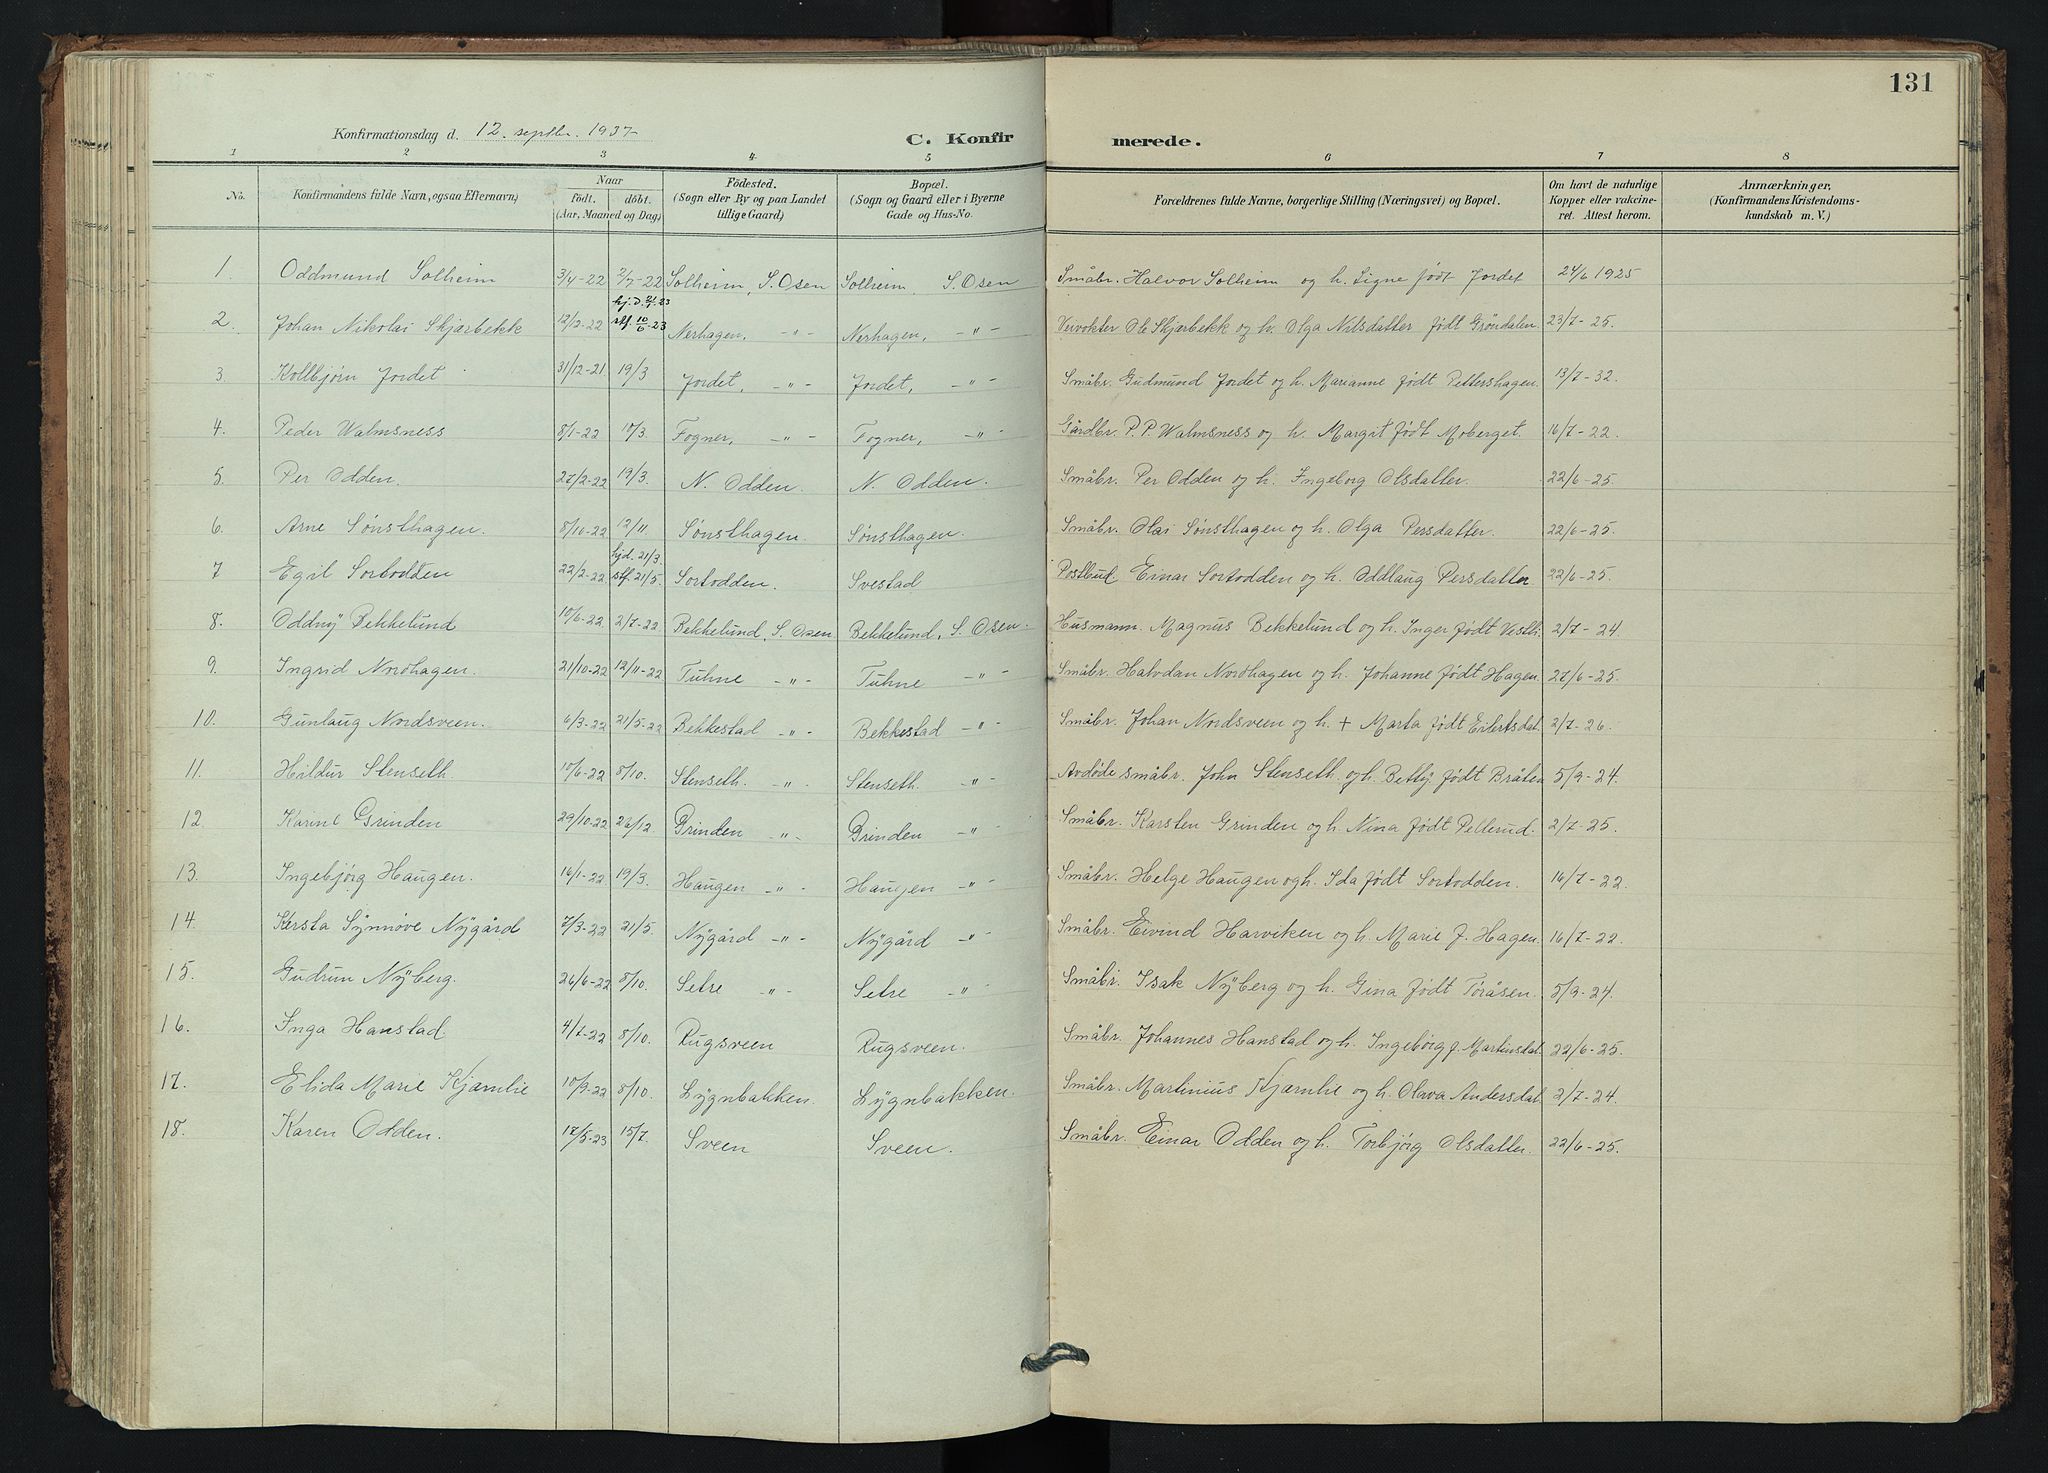 131
Konfirmationsdag d. 12. septbr. 1937
C. Konfirmerede.
1 2 3 4 5 6 7 8
No. Konfirmandens fulde Navn, ogsaa Efternavn) Naar födt. döbt. (Aar, Maaned og Dag) Födested. (Sogn eller By og paa Landet tillige Gaard) Bopæl. (Sogn og Gaard eller i Byerne Gade og Hus-No. Forældrenes fulde Navne, borgerlige Stilling (Næringsvei) og Bopæl. Om havt de naturlige Kopper eller vakcineret. Attest herom. Anmærkninger, (Konfirmandens Kristendomskundskab m. V.)
1. Oddmund Solheim 3/4-22 2/7-22 Solheim, S. Osen Solheim, S. Osen Småbr. Halvor Solheim og h. Signe født Jordet 24/6 1925
2. Johan Nikolai Skjærbekk 12/2-22 hj.d. 21/1-23 stf. 10/6-23 Nerhagen, -"- Nerhagen, -"- Veivokter Ole Skjærbekk og h. Olga Nilsdatter født Grøndalen 23/7-25.
3. Kollbjørn Jordet 31/12-21 19/3 Jordet, -"- Jordet, -"- Småbr. Gudmund Jordet og h. Marianne født Pettershagen. 13/7-32.
4. Peder Walmsness 8/1-22 19/3. Fogner, -"- Fogner, -"- Gårdbr. P. P. Walmsness og h. Margit født Moberget. 16/7-22.
5. Per Odden. 27/2-22 19/3. N. Odden. N. Odden. Småbr. Per Odden og h. Ingeborg Olsdatter. 22/6-25.
6. Arne Sønsthagen. 8/10-22 12/11. Sønsthagen. Sønsthagen. Småbr. Olai Sønsthagen og h. Olga Persdatter. 22/6-25.
7 Egil Sortodden 22/2-22 hjd. 21/3. stf. 21/5. Sortodden. Svestad Postbud. Einar Sortodden og h. Oddlaug Persdatter 22/6-25.
8. Oddny Bekkelund 10/6-22 2/7-22 Bekkelund, S. Osen Bekkelund, S. Osen. Husmann. Magnus Bekkelund og h. Inger født Vesth. 2/7-24.
9. Ingrid Nordhagen. 21/10-22 12/11-22 Tuhne -"- Tuhne -"- Småbr. Halvdan Nordhagen og h. Johanne født Hagen. 27/6-25.
10. Gunlaug Nordsveen. 6/3-22 21/5-22 Bekkestad -"- Bekkestad -"- Småbr. Johan Nordsveen og h. + Marta født Eilertsdat. 2/7-26.
11. Hildur Stenseth. 10/6-22 8/10. Stenseth. -"- Stenseth. -"- Avdøde småbr. John Stenseth. og h. Betty født Bråten 5/9-24.
12. Karine Grinden 29/10-22 26/12 Grinden -"- Grinden -"- Småbr. Karsten Grinden og h. Nina født Pellerud. 2/7-25.
13. Ingebjørg Haugen. 16/1-22 19/3. Haugen -"- Haugen -"- Småbr. Helge Haugen og h. Ida født Sortodden. 16/7-22.
14. Kersta Synnøve Nygård 7/3-22 21/5. Nygård -"- Nygård -"- Småbr. Eivind Harviken og h. Marie f. Hagen. 16/7-22.
15. Gudrun Nyberg. 26/6-22 8/10. Setre -"- Setre -"- Småbr. Isak Nyberg og h. Gina født Toråsen. 5/9-24.
16. Inga Hanstad. 4/7-22 8/10. Rugsveen Rugsveen. Småbr. Johannes Hanstad og h. Ingebørg f. Martinsdat. 22/6-25.
17. Elida Marie Kjærnlie 10/9-22 8/10. Lygnbakken. Lygnbakken. Småbr. Martinius Kjærnlie og h. Olava Andersdat. 2/7-24.
18. Karen Odden. 17/5-23 15/7. Sveen Sveen. Småbr. Einar Odden og h. Torbjørg Olsdatter. 22/6-25.